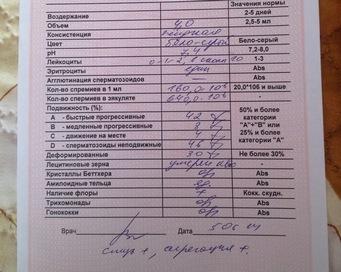 Значения нормы
Воздержание 2-5 дней
Объем 4,0 2,5-5 мл
Консистенция
Цвет бело-серый Бело-серый
pH 7,4 7,2-8,0
Лейкоциты 0-1-2, 10 1-3
Эритроциты един Abs
Агглютинация сперматозоидов Abs
Кол-во спермиев в 1 мл 160,0·10⁶ 20,0*106 и выше
Кол-во спермиев в эякуляте 640,0·10⁶
Подвижность (%): 50% и более
A - быстрые прогрессивные 42 категории
B - медленные прогрессивные "A"+"B" или
C - движение на месте 4 25% и более
D - сперматозоиды неподвижные 46 категории "A"
Деформированные 30 Не более 30%
Лецитиновые зерна умерен
Кристаллы Беттхера Abs
Амилоидные тельца Abs
Наличие флоры Кокк. скудн.
Трихомонады Abs
Гонококки Abs
Врач Дата
слизь +, агрегация +.